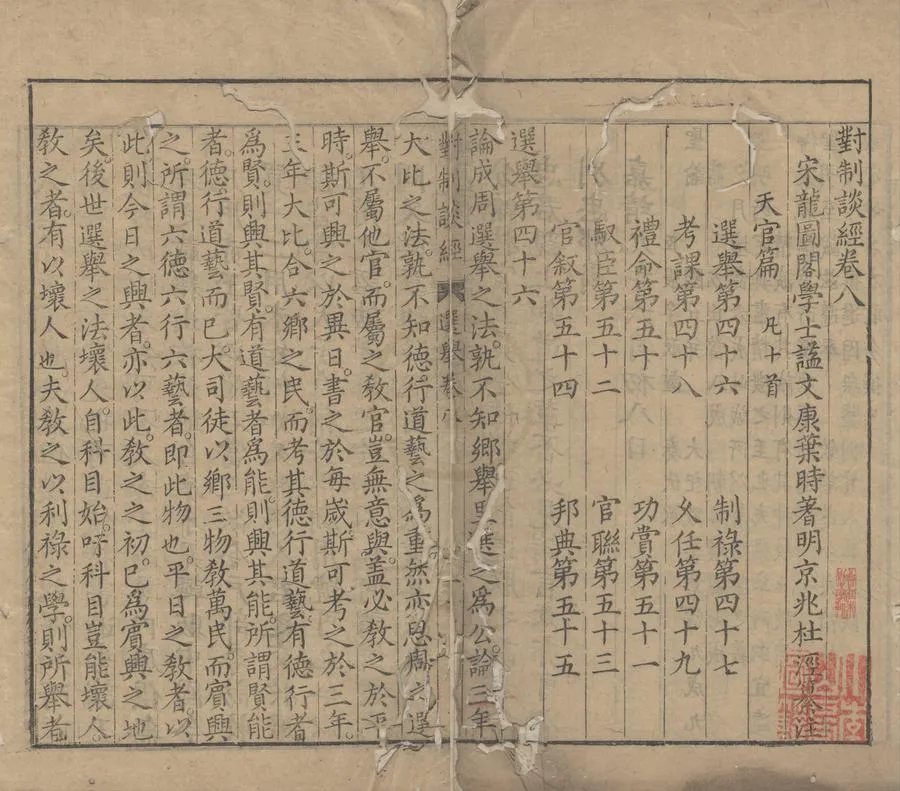 對制談經卷八
宋龍圖閣學士謚文康葉時著明京兆杜涇箋注
天官篇 凡十首
選舉第四十六 制祿第四十七
考課第四十八 久任第四十九
禮命第五十 功賞第五十一
馭臣第五十二 官聯第五十三
官敘第五十四 邦典第五十五
選舉第四十六
論成周選舉之法孰不知鄉舉里選之為公論三年
對制談經 選舉卷八
大比之法孰不知德行道藝之為重然亦思周之選
舉不屬他官而屬之教官豈無意與蓋必教之於平
時斯可興之於異日書之於每歲斯可考之於三年
三年大比合六鄉之民而考其德行道藝有德行者
為賢則興其賢有道藝者為能則興其能所謂賢能
者德行道藝而已大司徒以鄉三物教萬民而賓興
之所謂六德六行六藝者即此物也平日之教者以
此則今日之興者亦以此教之之初已為賓興之地
矣後世選舉之法壞人自科目始吁科目豈能壞人
教之者有以壞人也夫教之以利祿之學則所舉者